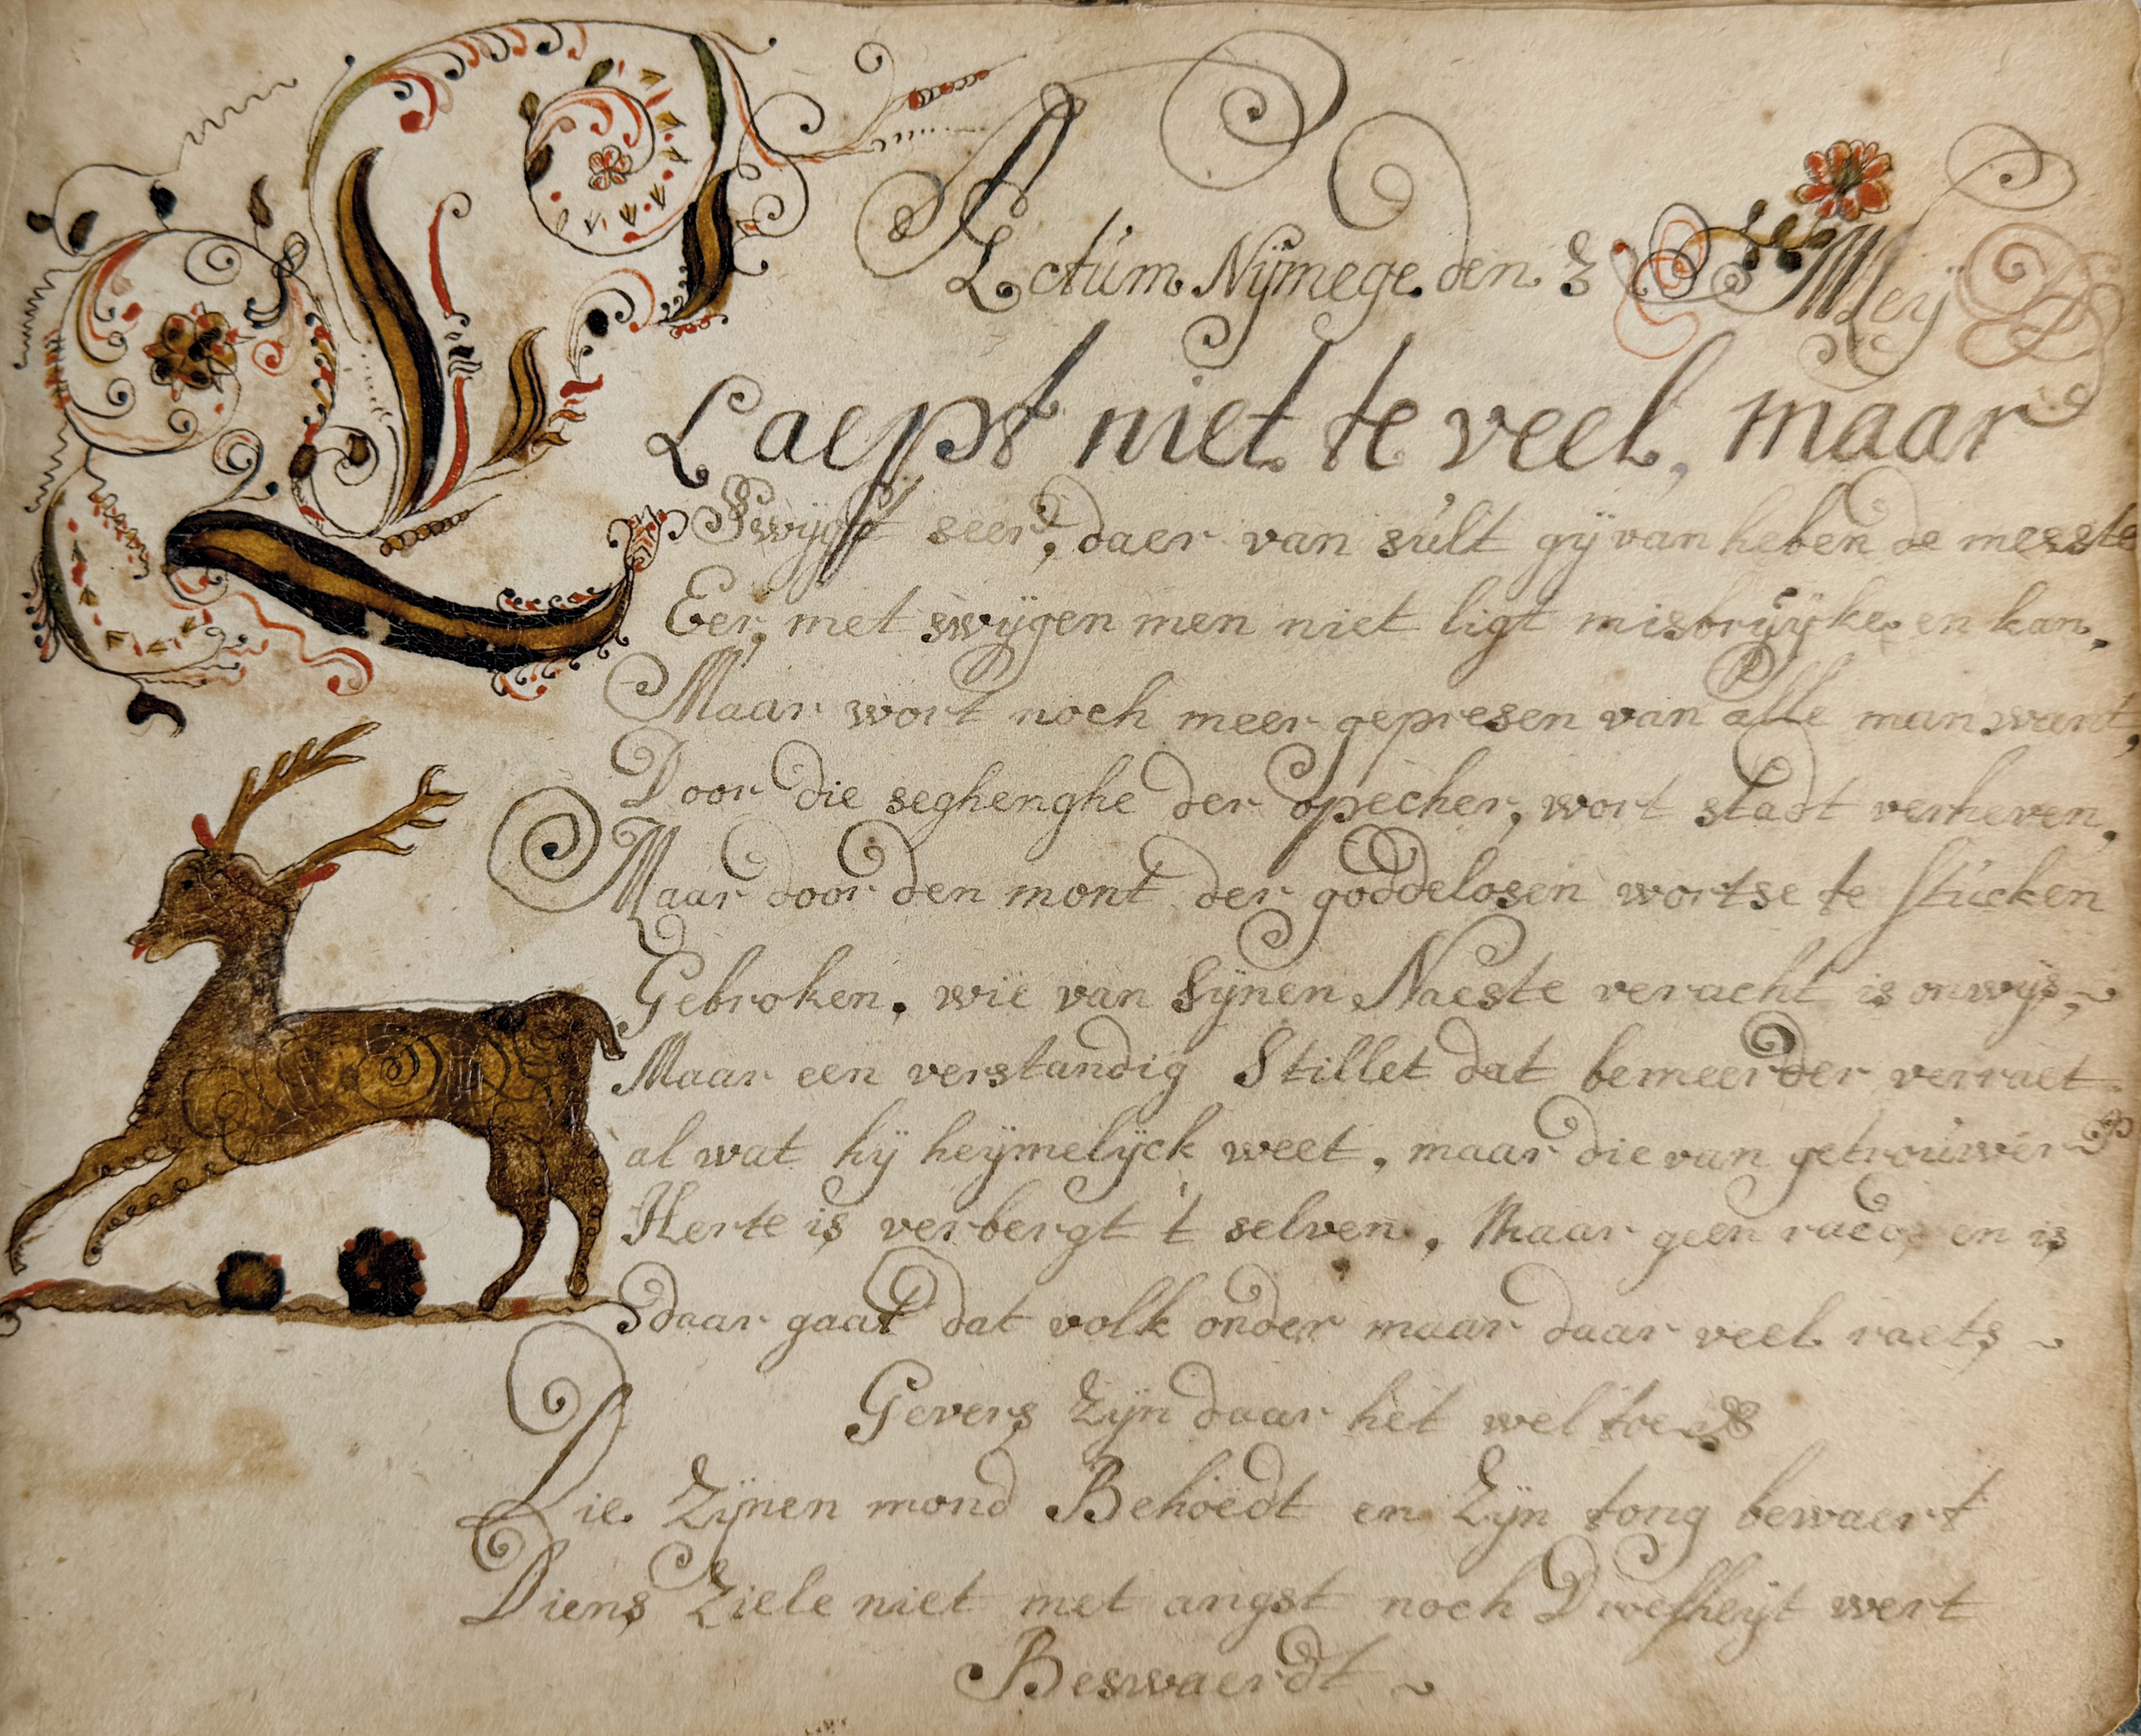 Actum Nymege den 3 Meÿ
Laept niet te veel, maar
Swygt seer, daer van sult gÿ van heben de meeste
Eer, met swÿgen men niet ligt misbruÿken en kan,
Maar wort noch meer gepresen van alle man want,
Door die seghenghe der opecher, wort stadt verheven,
Maar door den mont der goddelosen wortse te stucken
Gebroken. wie van Sÿnen Naeste veracht is onwÿs,
Maar een verstandig Stillet dat bemeerder verraet
al wat hÿ heÿmelÿck weet, maar die van getrouwer
Herte is verbergt 't selven, Maar geen raedt en is
daar gaat dat volk onder maar daar veel raets
Gevers Zÿn daar het wel toe
Die Zÿnen mond Behoedt en Zÿn tong bewaert
Diens Ziele niet met angst noch Droefheÿt wert
Beswaerdt